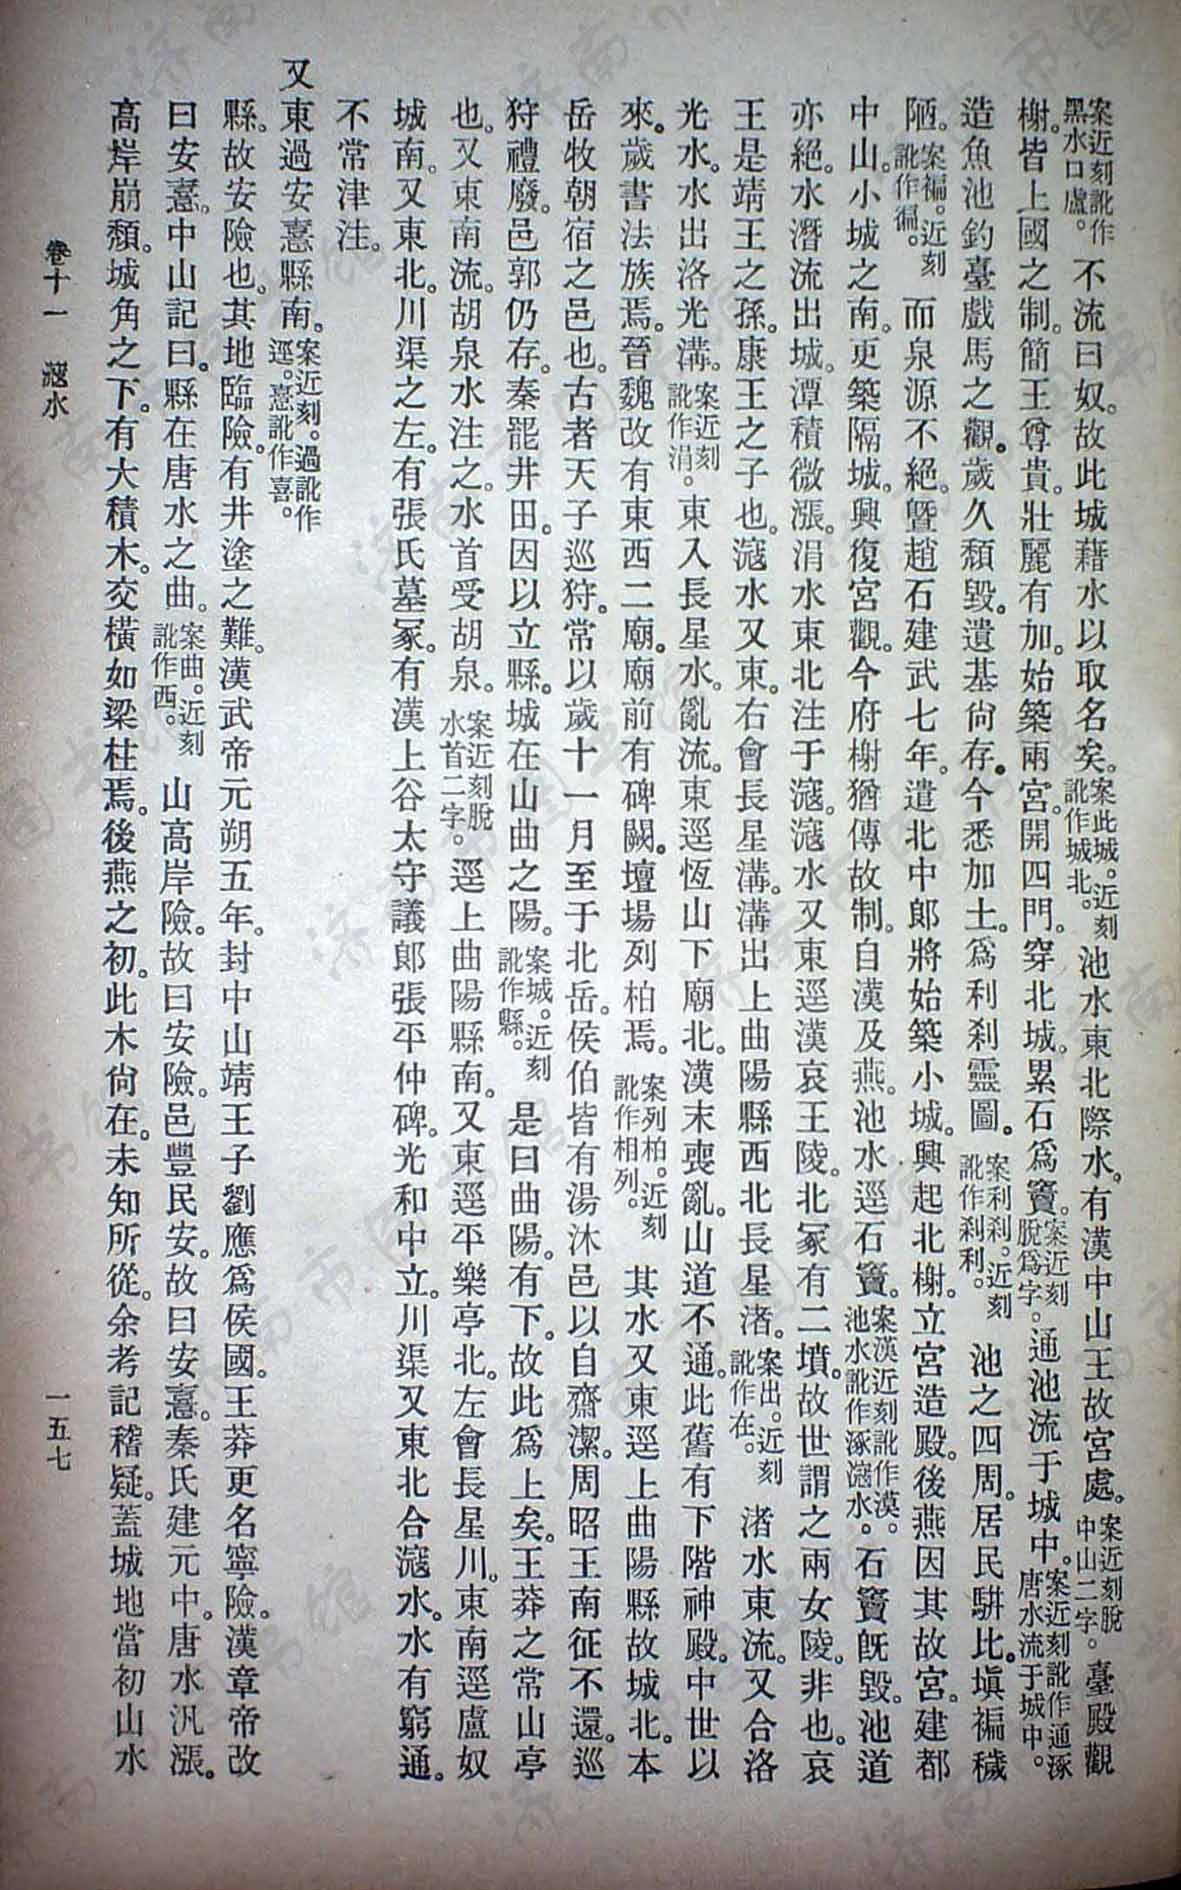 案近刻訛作黑水口盧。不流曰奴。故此城藉水以取名矣。案此城。近刻訛作城北。池水東北際水。有漢中山王故宮處。案近刻脫中山二字。臺殿觀
榭。皆上國之制。簡王尊貴。壯麗有加。始築兩宮。開四門。穿北城。累石爲竇。案近刻脫爲字。通池流于城中。案近刻訛作通涿唐水流于城中。
造魚池釣臺戲馬之觀。歲久頹毀。遺基尙存。今悉加土。爲利刹靈圖。案利刹。近刻訛作刹利。池之四周。居民駢比。塡褊穢
陋。案褊。近刻訛作徧。而泉源不絕。曁趙石建武七年。遣北中郞將始築小城。興起北榭。立宮造殿。後燕因其故宮。建都
中山。小城之南。更築隔城。興復宮觀。今府榭猶傳故制。自漢及燕。池水逕石竇。案漢近刻訛作漠。池水訛作涿滱水。石竇旣毀。池道
亦絕。水潛流出城。潭積微漲。涓水東北注于滱。滱水又東逕漢哀王陵。北冢有二墳。故世謂之兩女陵。非也。哀
王是靖王之孫。康王之子也。滱水又東。右會長星溝。溝出上曲陽縣西北長星渚。案出。近刻訛作在。渚水東流。又合洛
光水。水出洛光溝。案近刻訛作涓。東入長星水。亂流。東逕恆山下廟北。漢末喪亂。山道不通。此舊有下階神殿。中世以
來。歲書法族焉。晉魏改有東西二廟。廟前有碑闕。壇場列柏焉。案列柏。近刻訛作相列。其水又東逕上曲陽縣故城北。本
岳牧朝宿之邑也。古者天子巡狩。常以歲十一月至于北岳。侯伯皆有湯沐邑以自齋潔。周昭王南征不還。巡
狩禮廢。邑郭仍存。秦罷井田。因以立縣。城在山曲之陽。案城。近刻訛作縣。是曰曲陽。有下。故此爲上矣。王莽之常山亭
也。又東南流。胡泉水注之。水首受胡泉。案近刻脫水首二字。逕上曲陽縣南。又東逕平樂亭北。左會長星川。東南逕盧奴
城南。又東北。川渠之左。有張氏墓冢。有漢上谷太守議郞張平仲碑。光和中立。川渠又東北合滱水。水有窮通。
不常津注。
又東過安憙縣南。案近刻。過訛作逕。憙訛作喜。
縣。故安險也。其地臨險。有井塗之難。漢武帝元朔五年。封中山靖王子劉應爲侯國。王莽更名寧險。漢章帝改
曰安憙。中山記曰。縣在唐水之曲。案曲。近刻訛作西。山高岸險。故曰安險。邑豐民安。故曰安憙。秦氏建元中。唐水汎漲。
高岸崩頹。城角之下。有大積木。交橫如梁柱焉。後燕之初。此木尙在。未知所從。余考記稽疑。蓋城地當初山水
卷十一 滱水 一五七